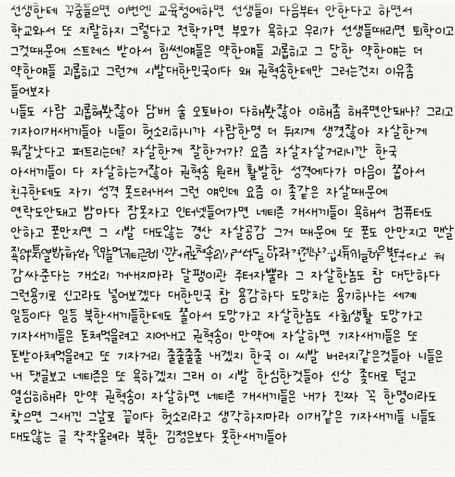 선생한테 꾸중들으면 이번엔 교육청에하면 선생들이 다음부터 안한다고 하면서
학교와서 또 지랄하지 그렇다고 전학가면 부모가 욕하고 우리가 선생들때리면 퇴학이고
그것때문에 스트레스 받아서 힘쎈얘들은 약한얘들 괴롭히고 그 당한 약한얘는 더
약한얘들 괴롭히고 그런게 시발대한민국이다 왜 권혁송한테만 그러는건지 이유좀
들어보자
니들도 사람 괴롭혀봣잖아 담배 술 오토바이 다해봣잖아 이해좀 해주면안돼나? 그리고
기자이개새끼들아 니들이 헛소리하니까 사람한명 더 뒤지게 생겼잖아 자살한게
뭐잘낫다고 퍼트리는데? 자살한게 잘한거가? 요즘 자살자살거리니깐 한국
아새끼들이 다 자살하는거잖아 권혁송 원래 활발한 성격에다가 마음이 쫍아서
친구한테도 자기 성격 못드러내서 그런 얘인데 요즘 이 좆같은 자살때문에
연락도안돼고 밤마다 잠못자고 인터넷들어가면 네티즌 개새끼들이 욕해서 컴퓨터도
안하고 폰만지면 그 시발 대도않는 경산 자살공감 그거 때문에 또 폰도 안만지고 맨날
감싸준다는 개소리 꺼내지마라 달팽이관 주터자뿔라 그 자살한놈도 참 대단하다
그런용기로 신고라도 넣어보겠다 대한민국 참 용감하다 도망치는 용기하나는 세계
일등이다 일등 북한새끼들한테도 쫄아서 도망가고 자살한놈도 사회생활 도망가고
기자새끼들은 돈쳐먹을려고 지어내고 권혁송이 만약에 자살하면 기자새끼들은 또
돈받아쳐먹을려고 또 기자거리 줄줄줄줄 내겠지 한국 이 씨발 버러지같은것들아 니들은
내 댓글보고 네티즌은 또 욕하겠지 그래 이 시발 한심한것들아 신상 좆대로 털고
열심히해라 만약 권혁송이 자살하면 네티즌 개새끼들은 내가 진짜 꼭 한명이라도
찾으면 그새낀 그날로 끝이다 헛소리라고 생각하지마라 이개같은 기자새끼들 니들도
대도않는 글 작작올려라 북한 김정은보다 못한새끼들아